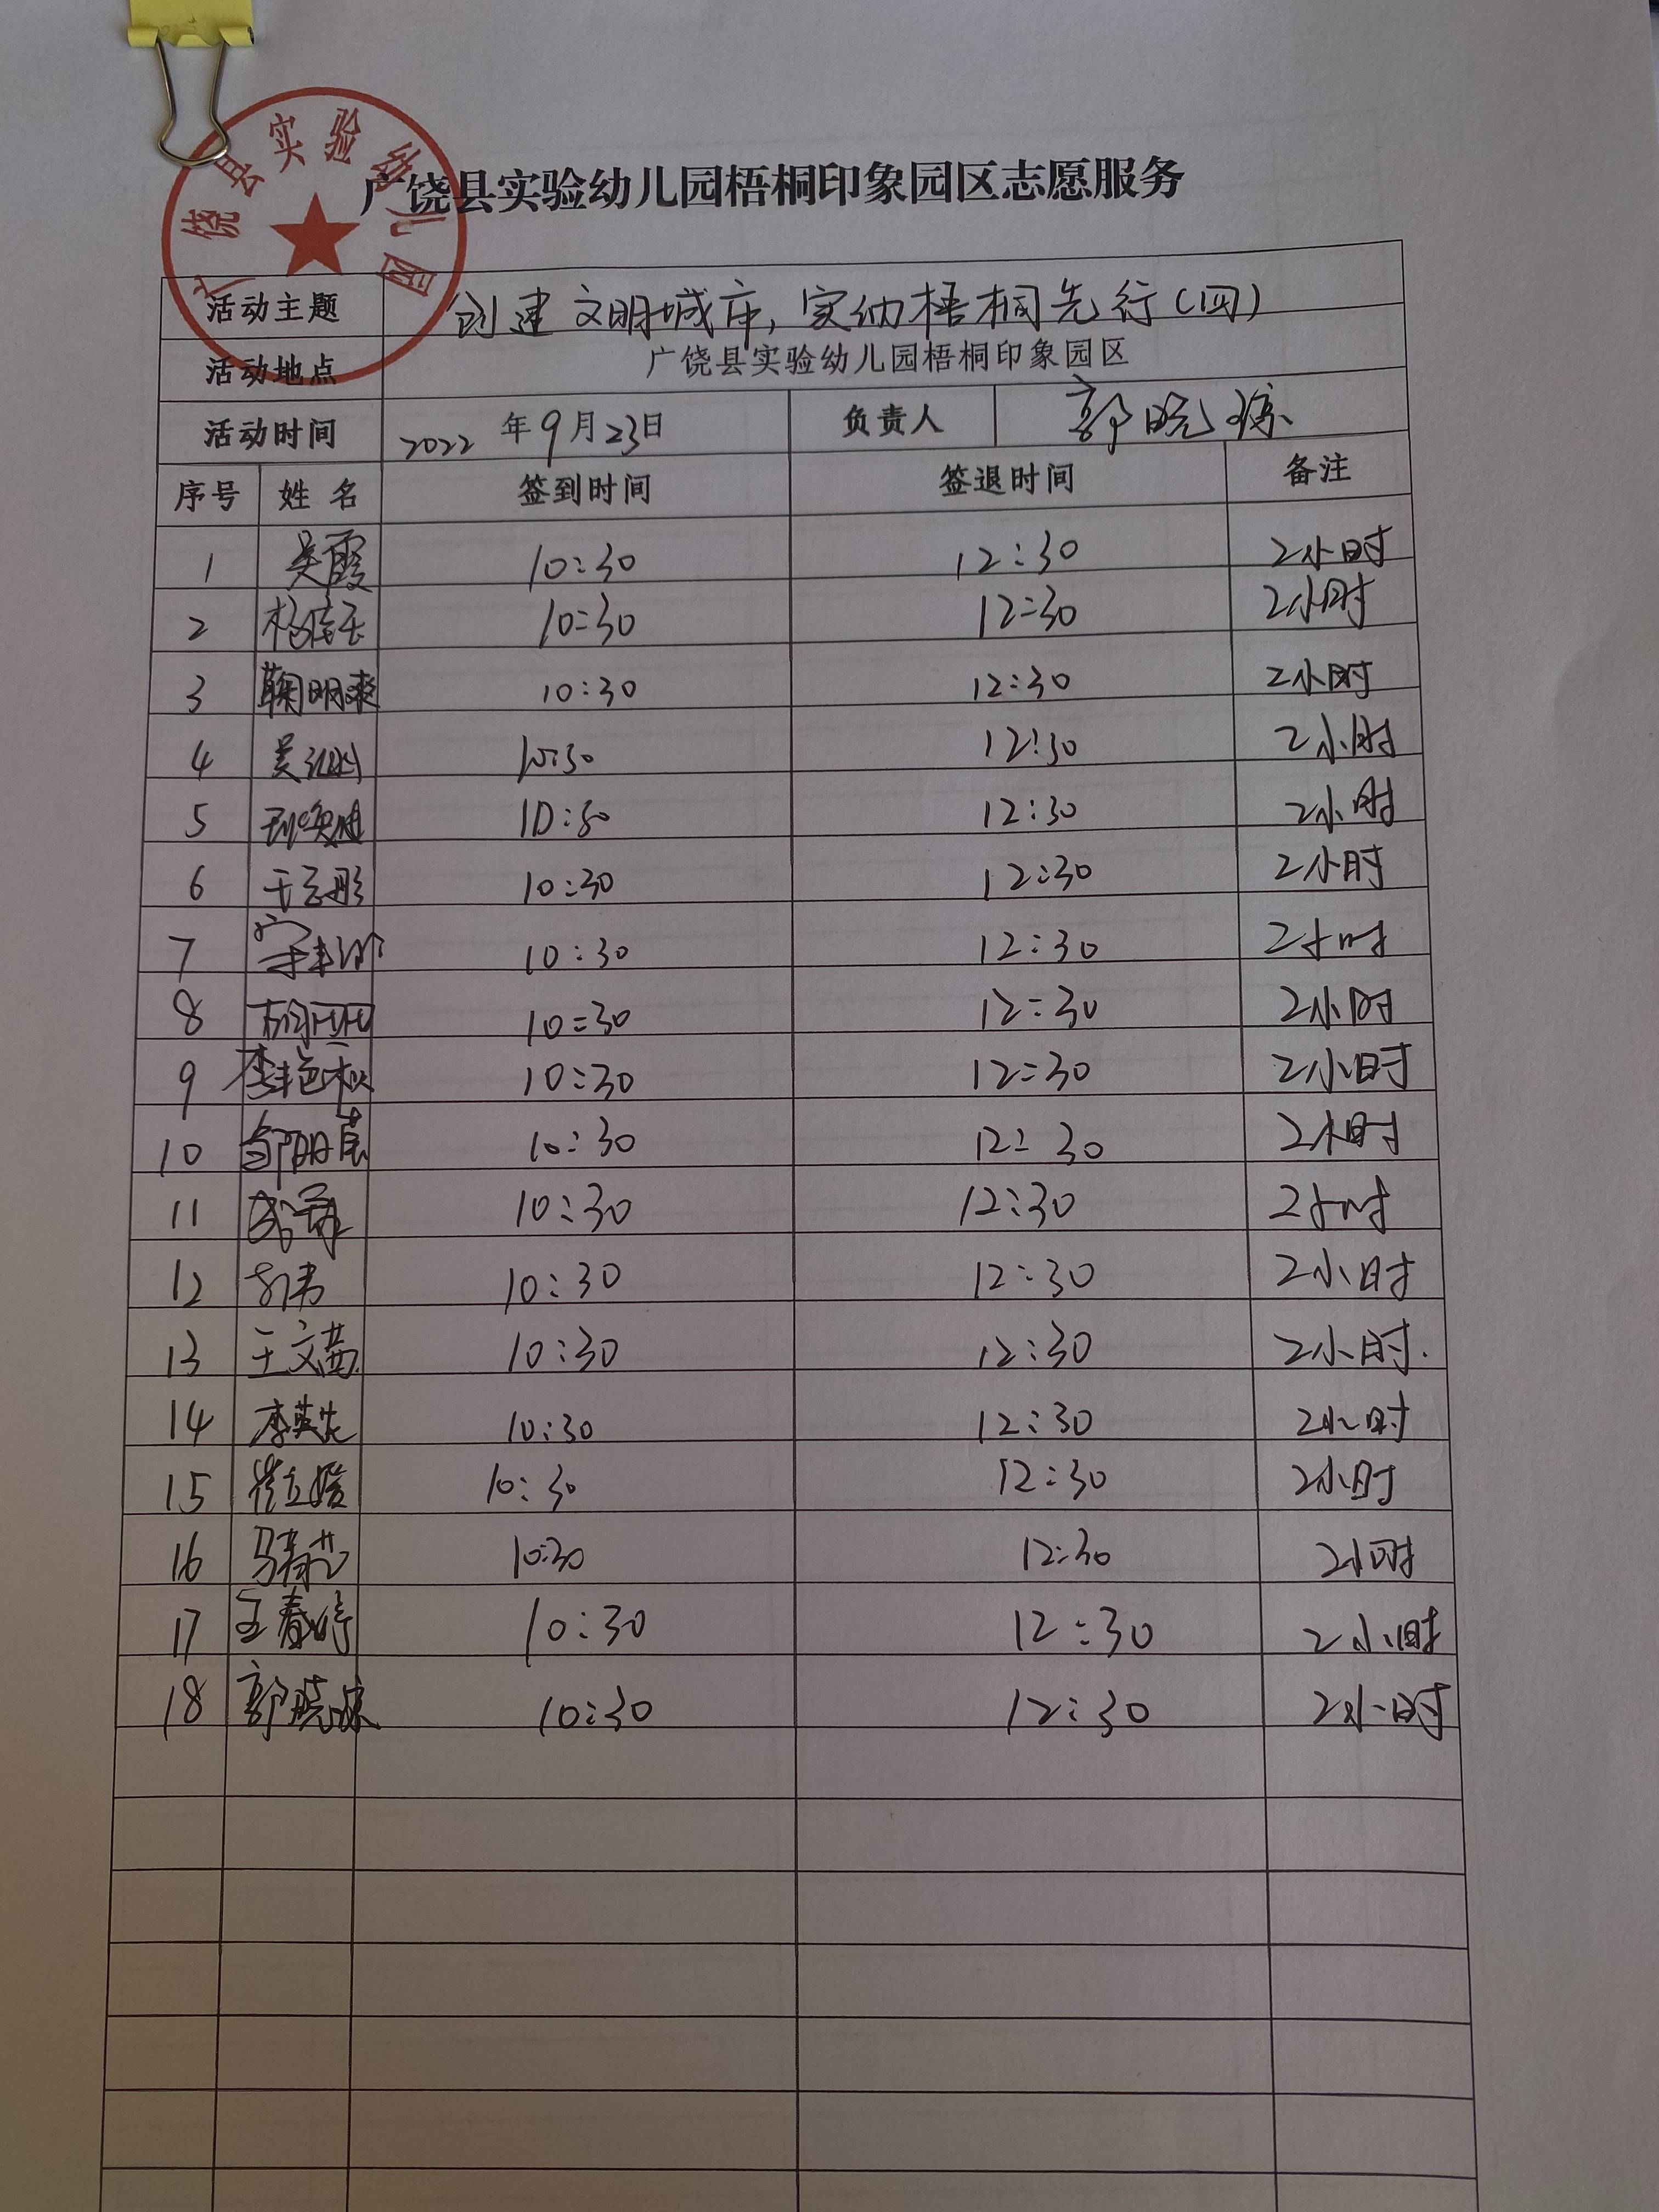 广饶县实验幼儿园
广饶县实验幼儿园梧桐印象园区志愿服务
活动主题 创建文明城市,实幼梧桐先行(四)
活动地点 广饶县实验幼儿园梧桐印象园区
活动时间 2022年9月23日 负责人 郭晓琼
序号 姓名 签到时间 签退时间 备注
1 吴霞 10:30 12:30 2小时
2 10:30 12:30 2小时
3 鞠明爽 10:30 12:30 2小时
4 10:30 12:30 2小时
5 10:30 12:30 2小时
6 10:30 12:30 2小时
7 10:30 12:30 2小时
8 10:30 12:30 2小时
9 李艳秋 10:30 12:30 2小时
10 10:30 12:30 2小时
11 10:30 12:30 2小时
12 10:30 12:30 2小时
13 王文茜 10:30 12:30 2小时.
14 10:30 12:30 2小时
15 10:30 12:30 2小时
16 10:30 12:30 2小时
17 王春婷 10:30 12:30 2小时
18 郭晓琼 10:30 12:30 2小时